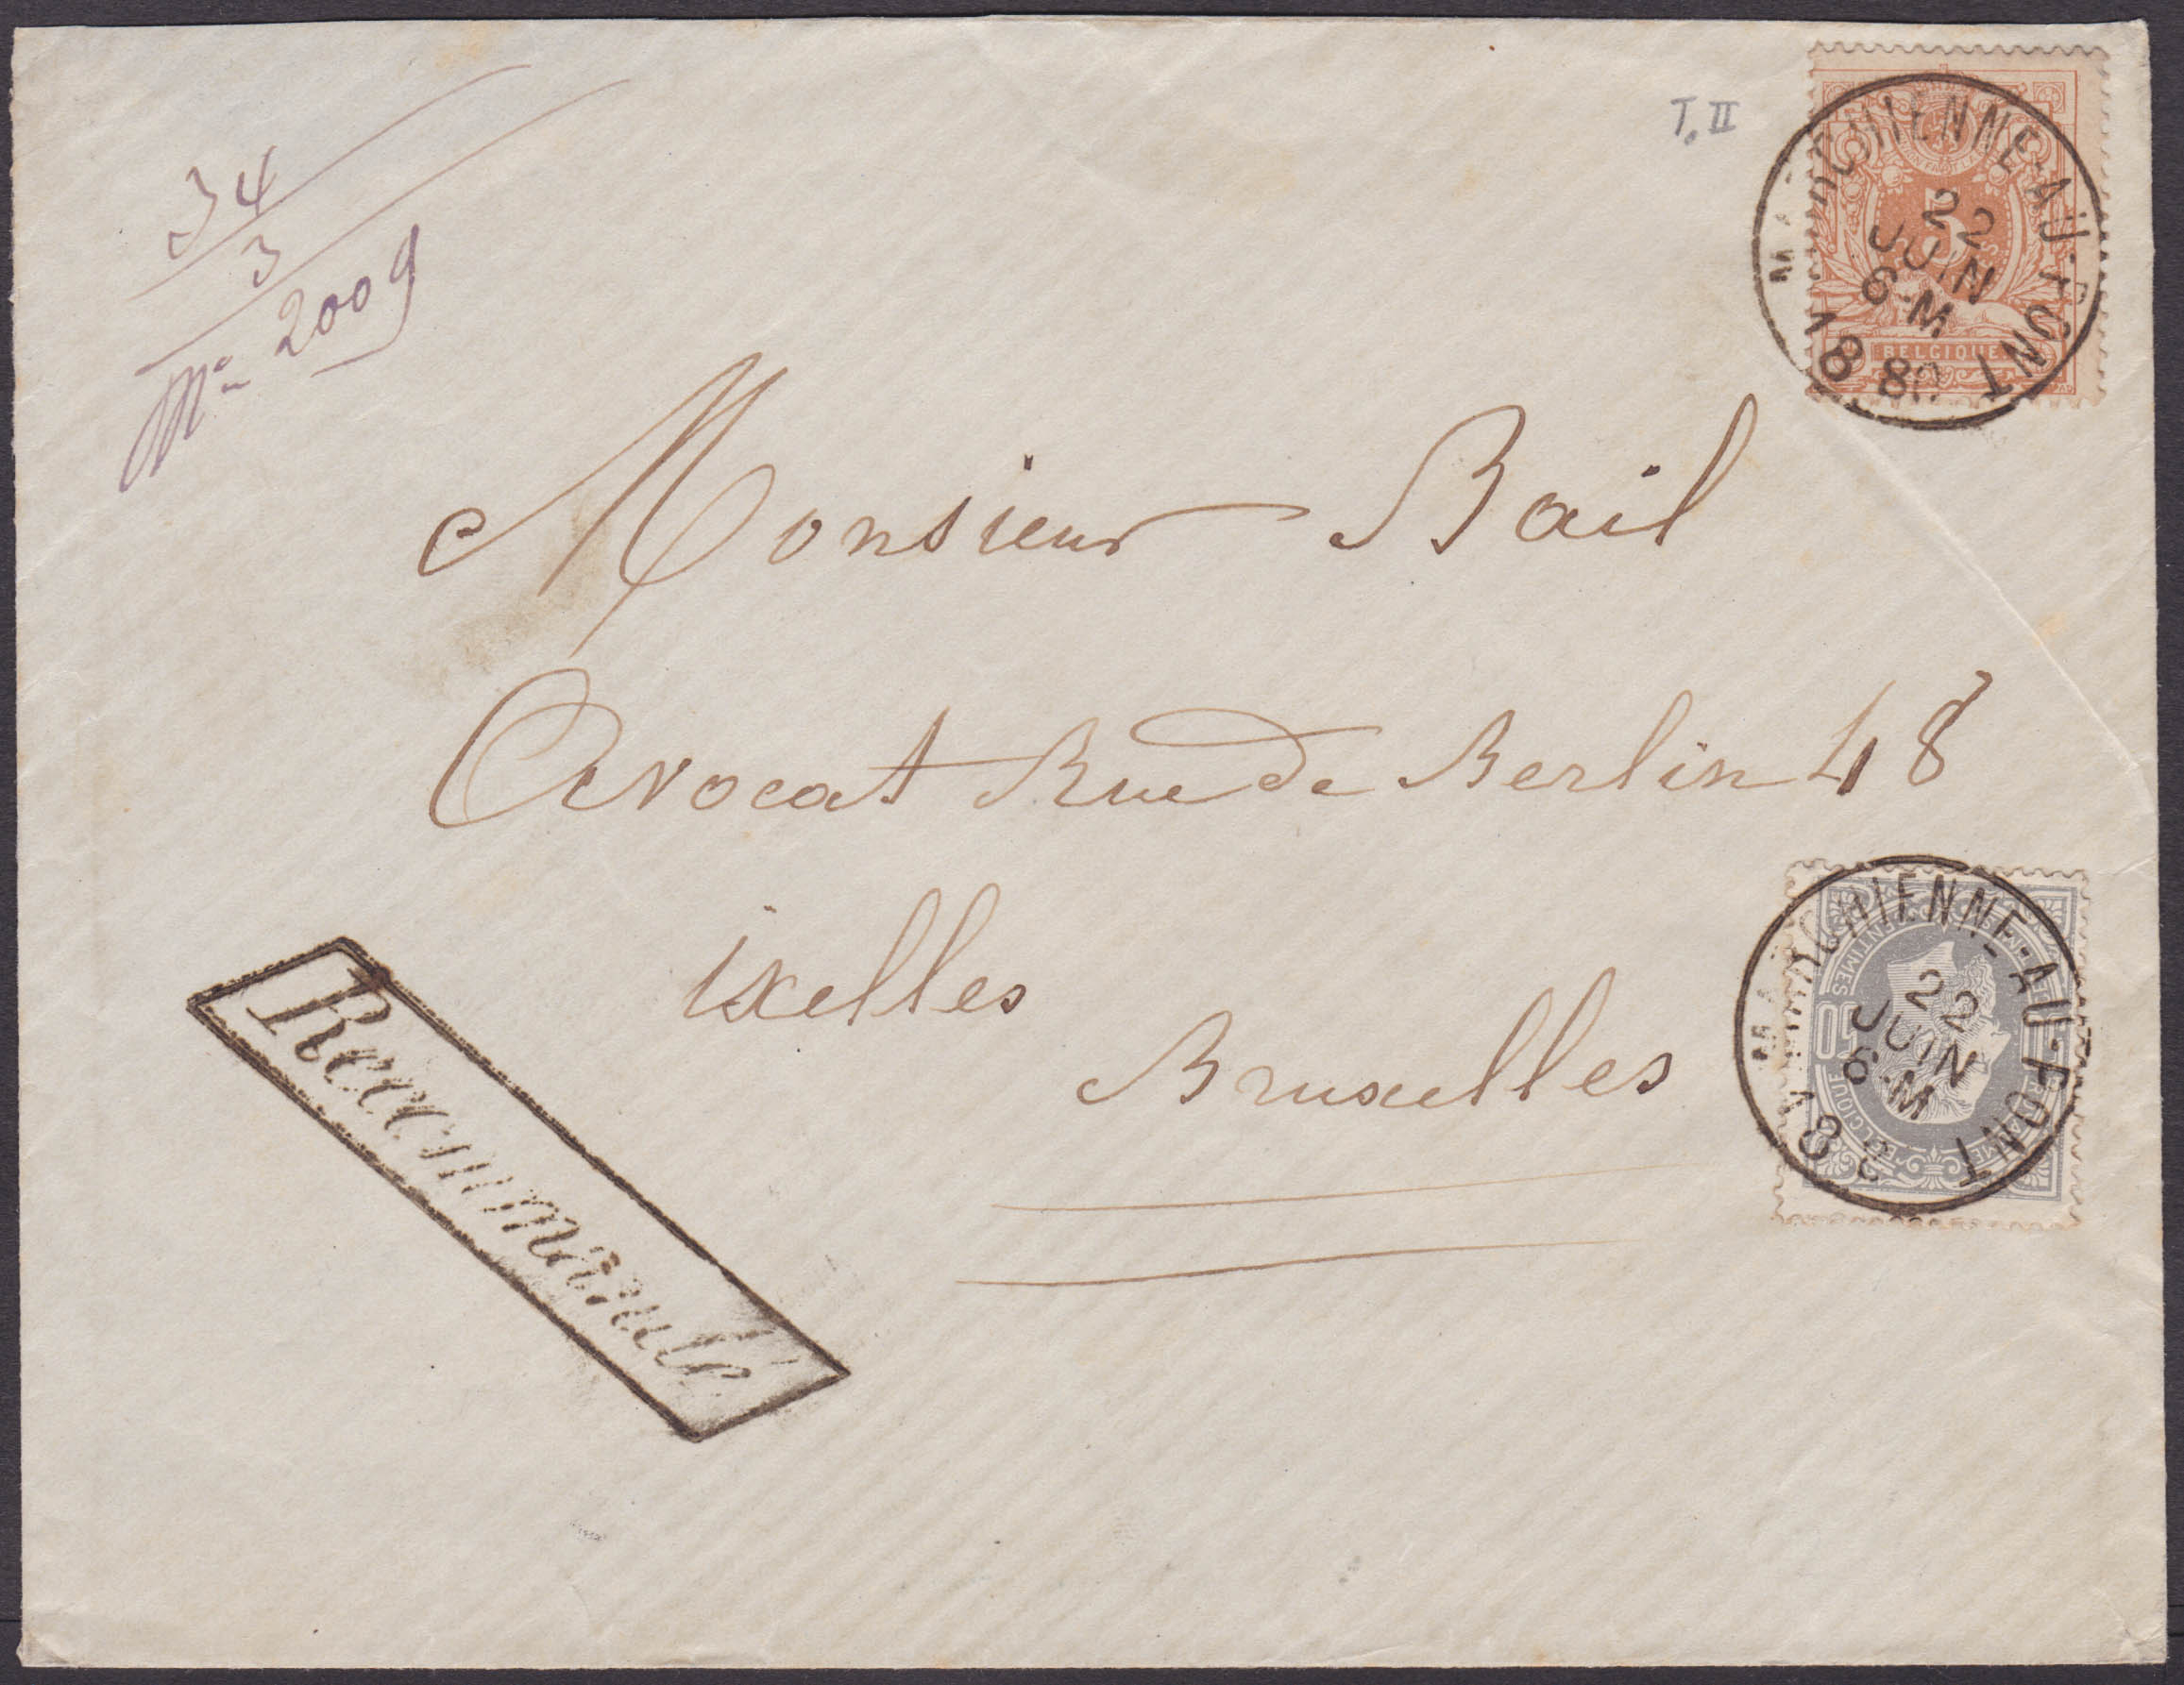 34
3
No 2009
T. II
MARCHIENNE-AU-PONT
22
JUIN
6-M
1880
5
BELGIQUE
Monsieur Bail
Avocat Rue de Berlin 48
ixelles
Bruxelles
Recommandé
MARCHIENNE-AU-PONT
22
JUIN
6-M
188
50
CENTIMES
BELGIQUE